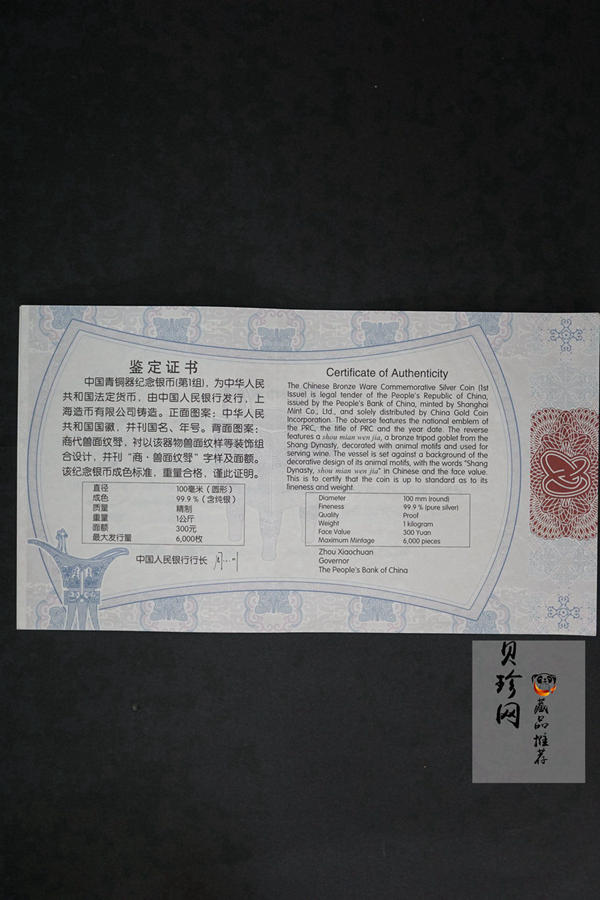 鉴定证书
中国青铜器纪念银币(第1组)，为中华人民
共和国法定货币，由中国人民银行发行，上
海造币有限公司铸造。正面图案：中华人民
共和国国徽，并刊国名、年号。背面图案：
商代兽面纹斝，衬以该器物兽面纹样等装饰组
合设计，并刊“商·兽面纹斝”字样及面额。
该纪念银币成色标准，重量合格，谨此证明。
直径 100毫米（圆形）
成色 99.9%（含纯银）
质量 精制
重量 1公斤
面额 300元
最大发行量 6,000枚
中国人民银行行长
Certificate of Authenticity
The Chinese Bronze Ware Commemorative Silver Coin (1st
Issue) is legal tender of the People's Republic of China,
issued by the People's Bank of China, minted by Shanghai
Mint Co., Ltd., and solely distributed by China Gold Coin
Incorporation. The obverse features the national emblem of
the PRC, the title of PRC and the year date. The reverse
features a shou mian wen jia, a bronze tripod goblet from the
Shang Dynasty, decorated with animal motifs and used for
serving wine. The vessel is set against a background of the
decorative design of its animal motifs, with the words "Shang
Dynasty, shou mian wen jia" in Chinese and the face value.
This is to certify that the coin is up to standard as to its
fineness and weight.
Diameter 100 mm (round)
Fineness 99.9 % (pure silver)
Quality Proof
Weight 1 kilogram
Face Value 300 Yuan
Maximum Mintage 6,000 pieces
Zhou Xiaochuan
Governor
The People's Bank of China
贝珍网
藏品推荐